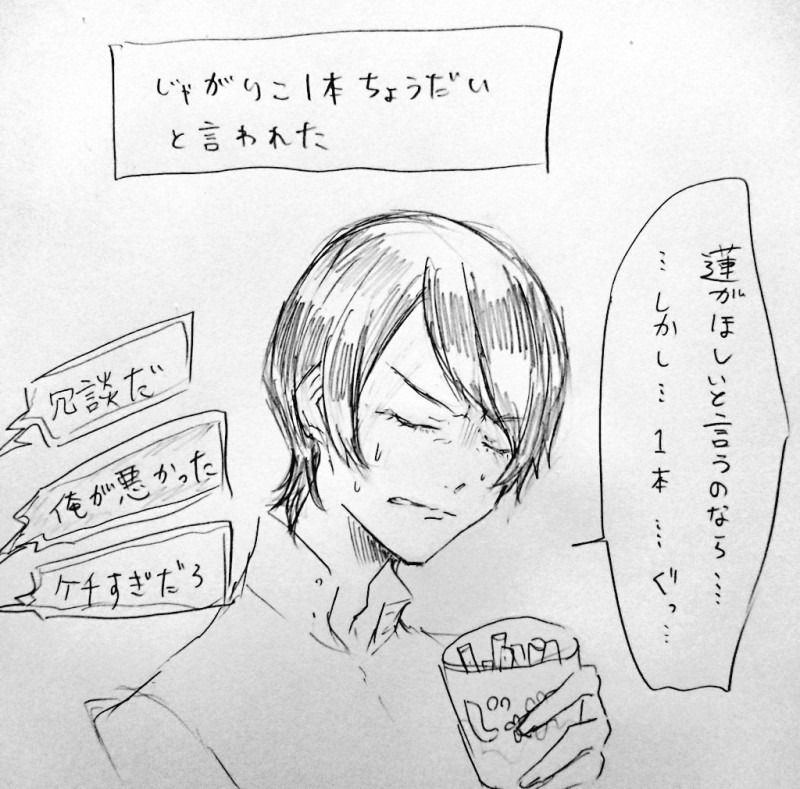 じゃがりこ1本ちょうだい
と言われた
蓮がほしいと言うのなら……
…しかし…1本……ぐっ…
冗談だ
俺が悪かった
ケチすぎだろ
じゃが